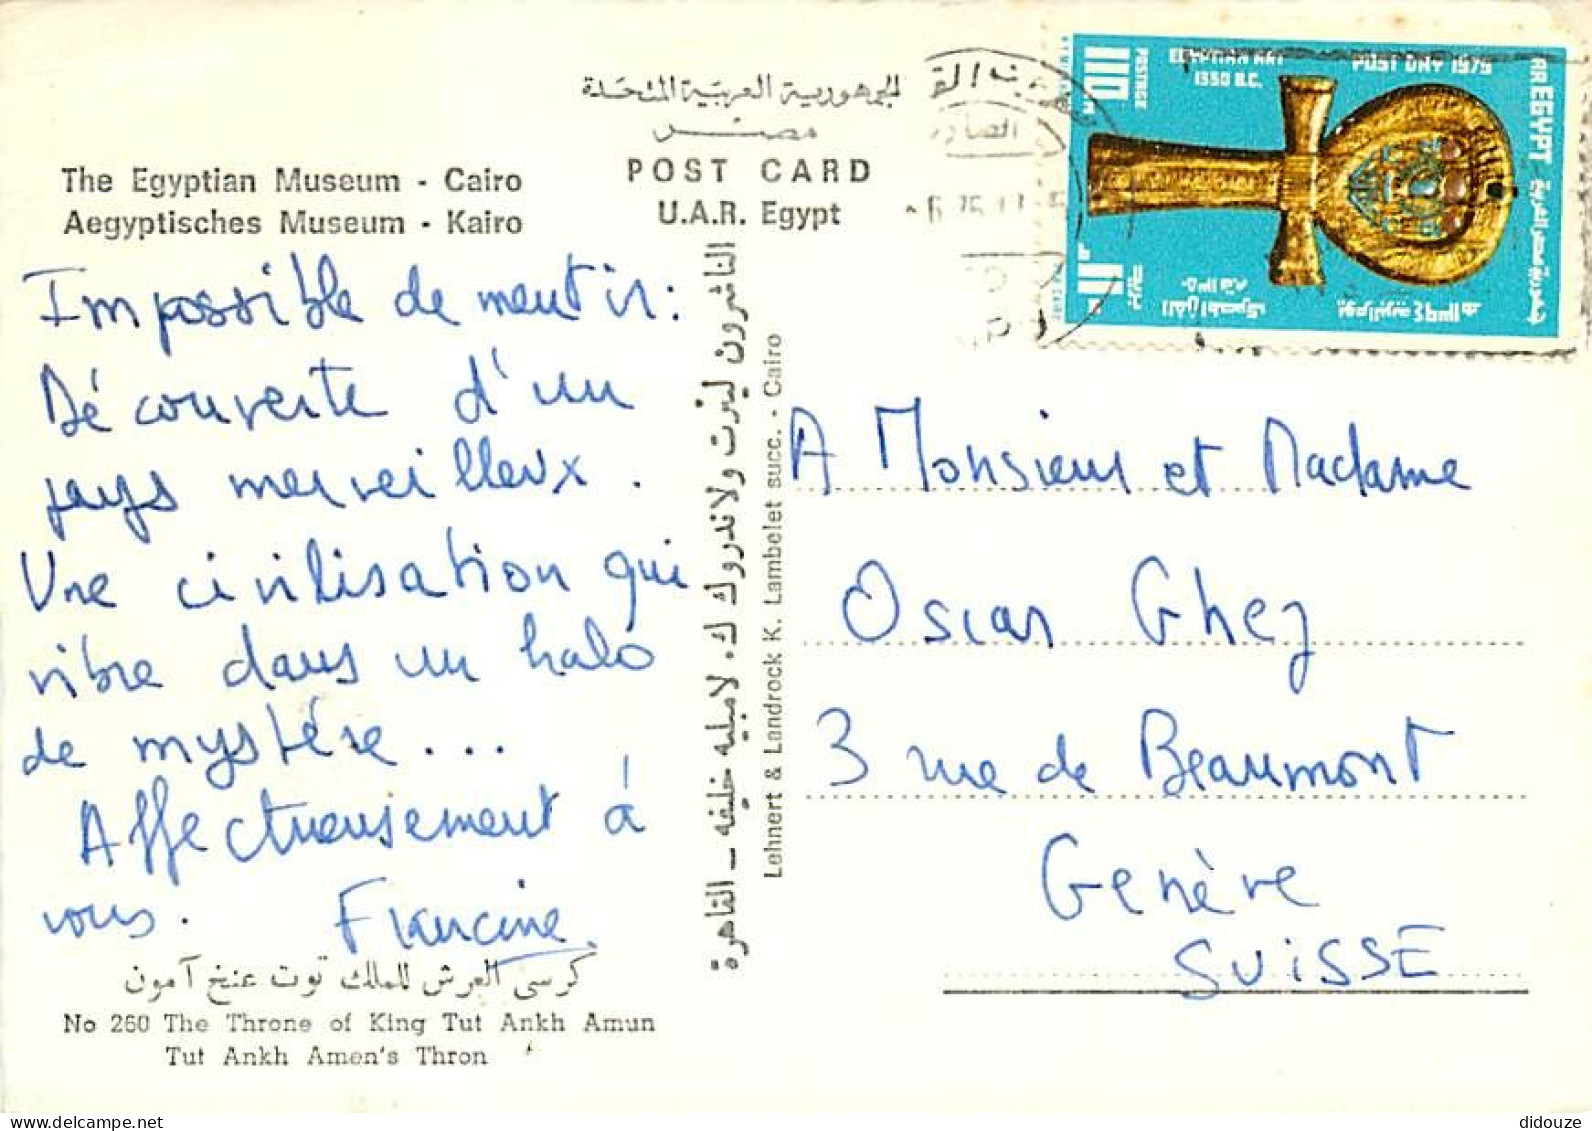 الجمهورية العربية المتحدة
مصر
POST CARD
U.A.R. Egypt
The Egyptian Museum - Cairo
Aegyptisches Museum - Kairo
Impossible de mentir :
Découverte d'un
pays merveilleux .
Une civilisation qui
vibre dans un halo
de mystère ...
Affectueusement à
vous . Francine
كرسى العرش للملك توت عنخ آمون
No 260 The Throne of King Tut Ankh Amun
Tut Ankh Amen's Thron
الناشرون لينرت ولاندروك ك. لامبليه خليفه - القاهرة
Lehnert & Landrock K. Lambelet succ. - Cairo
110 M
POSTAGE
EGYPTIAN ART
1350 B.C.
POST DAY 1975
AR EGYPT
A Monsieur et Madame
Oscar Ghez
3 rue de Beaumont
Genève
SUISSE
didouze